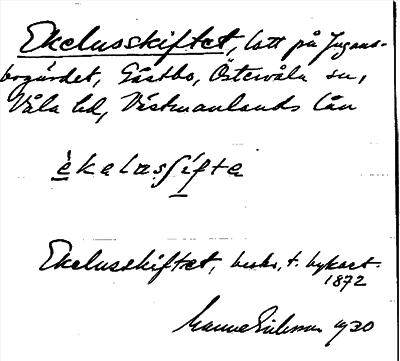 Ekelusskiftet, lott på Jugans-
bogärdet, Gästbo, Östervåla sn,
Våla hd, Västmanlands län
èkelasſífte
Ekelusskiftet, beskr. t. bykart.
1872
Manne Eriksson 1920